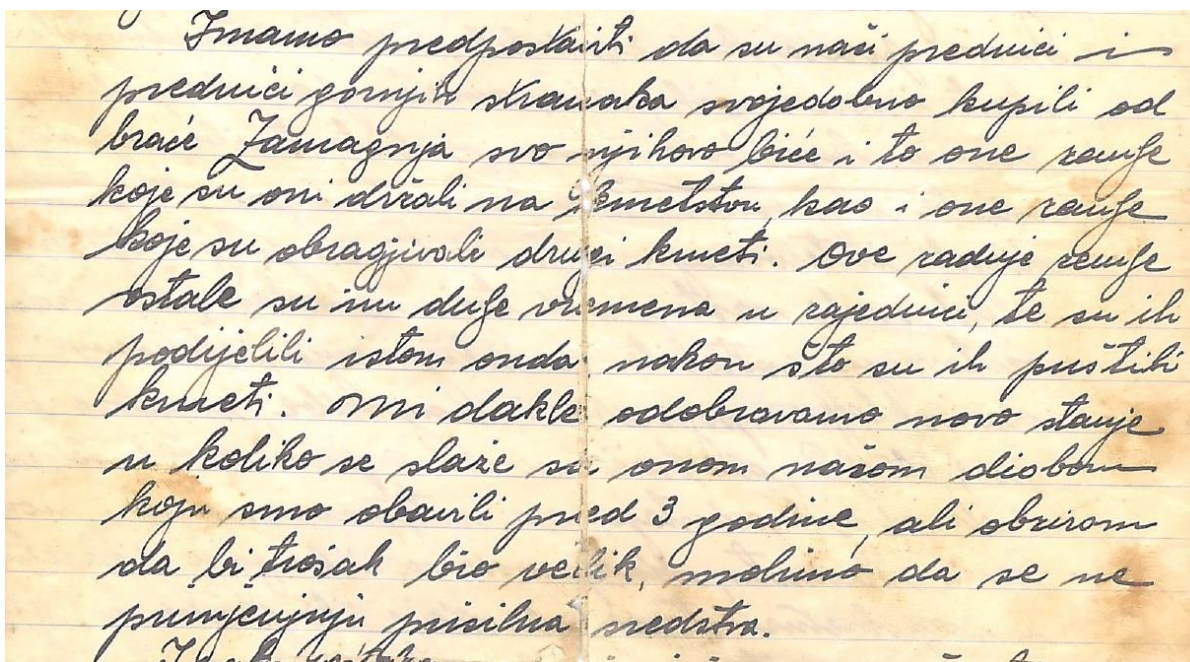 Imamo predpostaviti da su naši prednici i
prednici gornjih stranaka svojedobno kupili od
braće Zamagnja svo njihovo biće i to one zemlje
koje su oni držali na kmetstvu, kao i one zemlje
koje su obragjivali drugi kmeti. Ove zadnje zemlje
ostale su im duže vremena u zajednici, te su ih
podijelili istom onda nakon što su ih pustili
kmeti. Mi dakle odobravamo novo stanje
u koliko se slaže sa onom našom diobom
koju smo obavili pred 3 godine, ali obzirom
da bi trošak bio velik, molimo da se ne
primjenjuju prisilna sredstva.